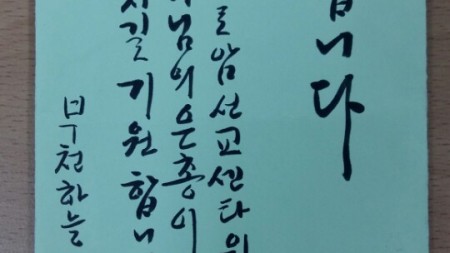 니다
로암선교센타위
님의은총이
시길기원합니
부천하늘